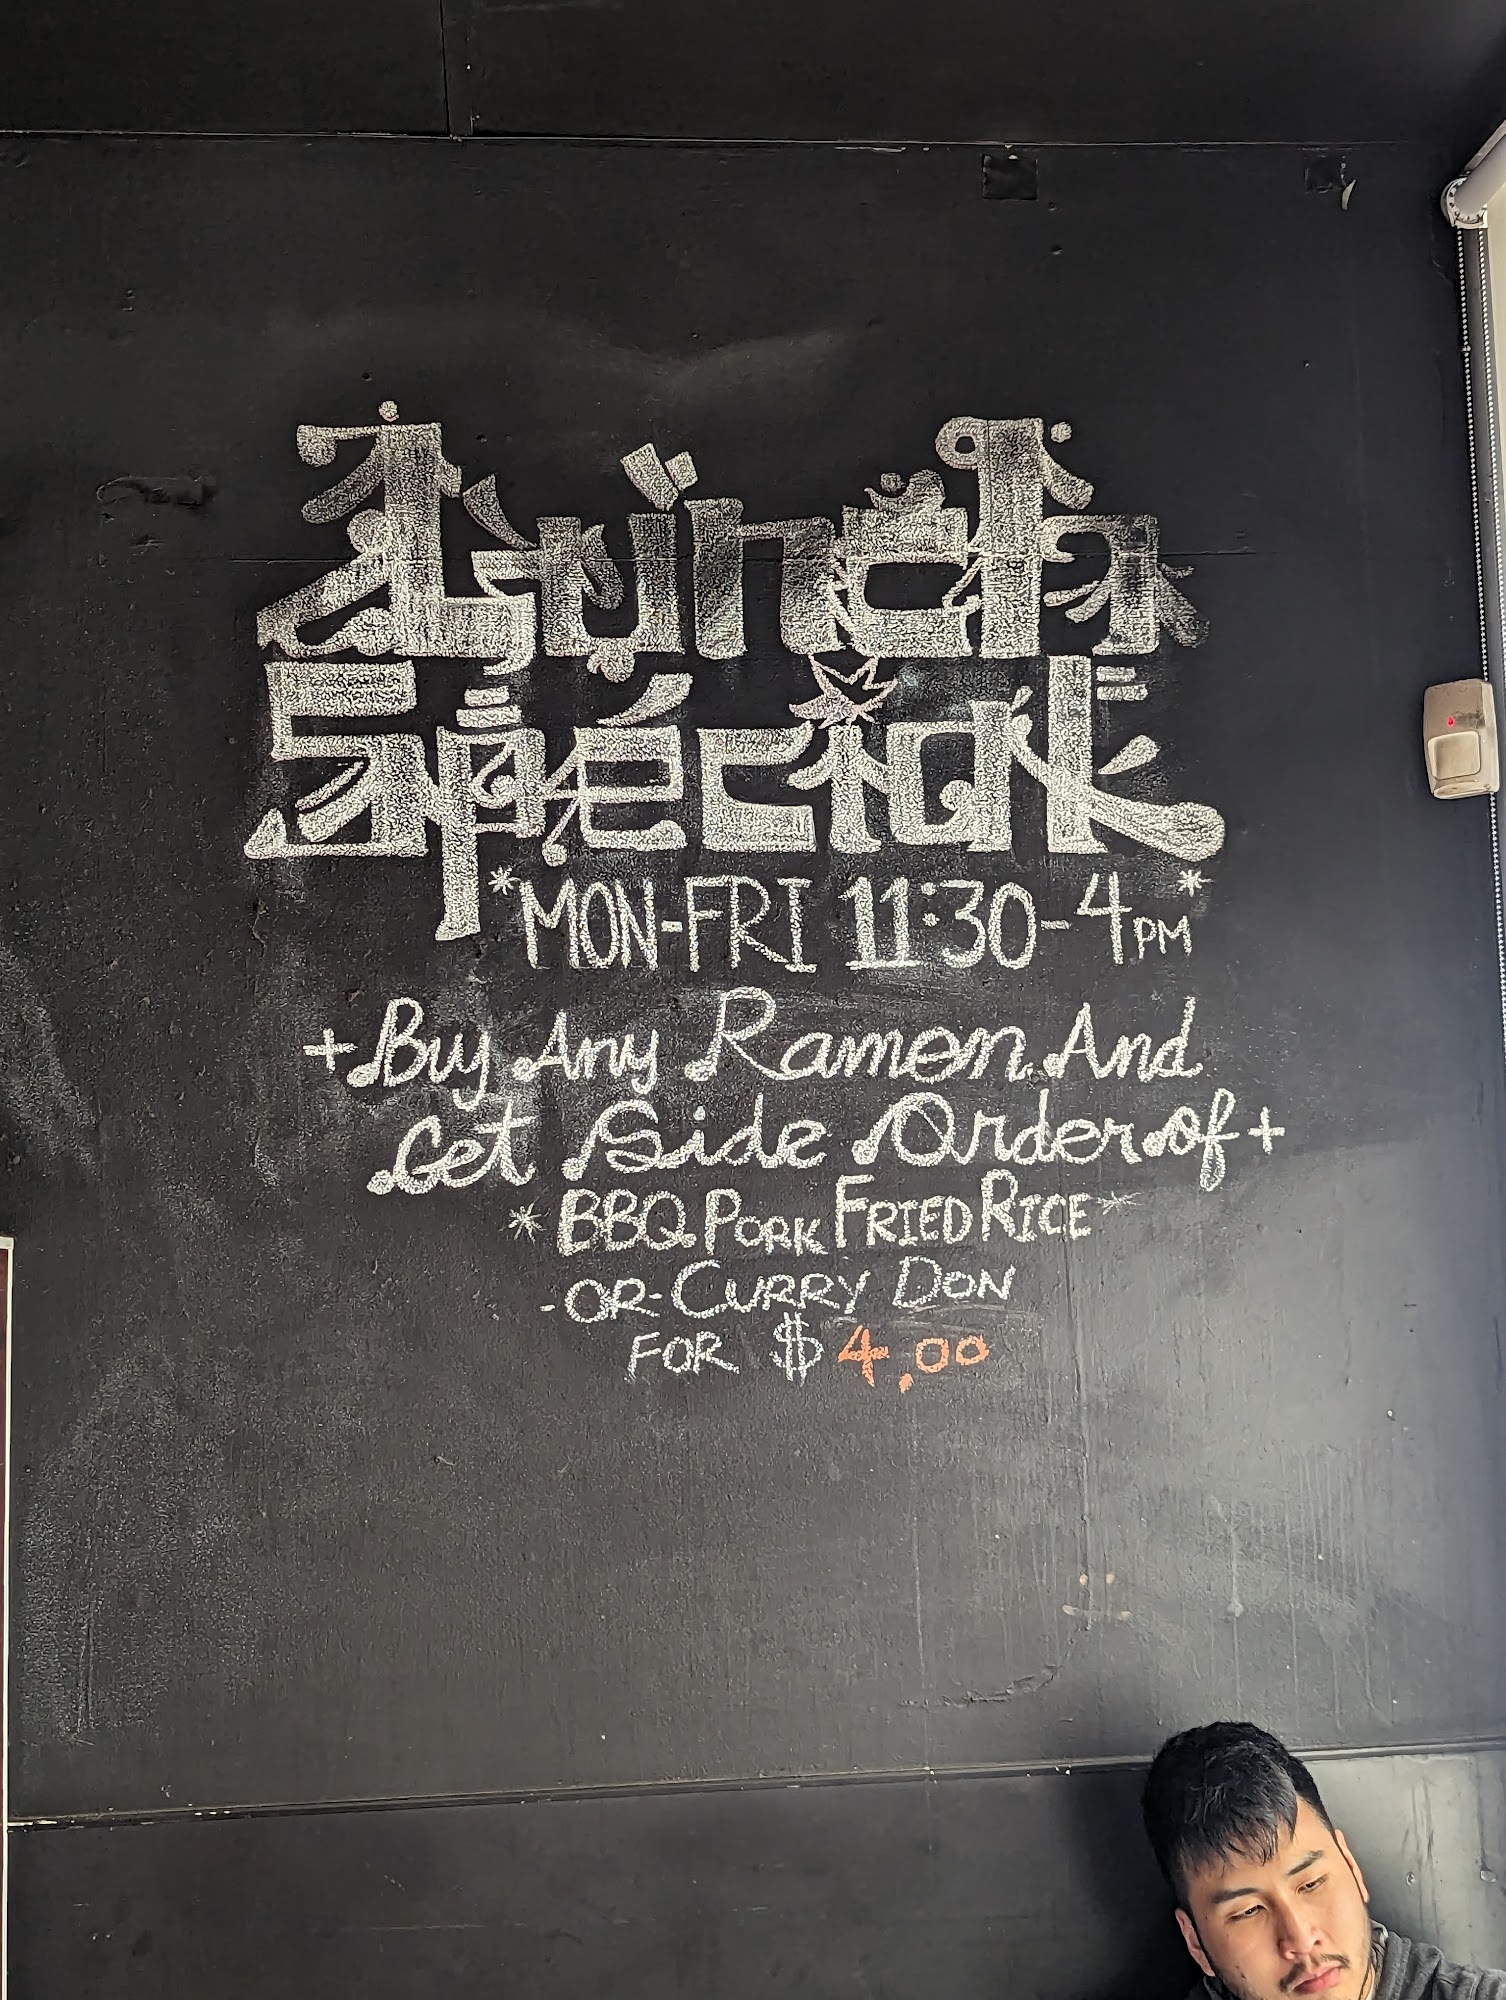 Lunch
Special
*MON-FRI 11:30-4PM*
+Buy Any Ramen And
Get Side Order of+
*BBQ PORK FRIED RICE*
-OR-CURRY DON
FOR $4.00